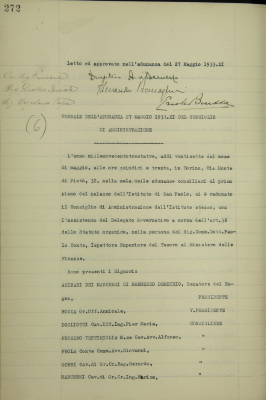 272
Letto ed approvato nell'adunanza del 27 Maggio 1933.XI
(6)
VERBALE DELL'ADUNANZA 17 MAGGIO 1933.XI DEL CONSIGLIO
DI AMMINISTRAZIONE
L'anno millenovecentotrentatre, addì ventisette del mese
di maggio, alle ore quindici e trenta, in Torino, Via Monte
di Pietà, 32, nella sala delle adunanze consiliari al primo
piano del palazzo dell'Istituto di San Paolo, si è radunato
il Consiglio di Amministrazione dell'Istituto stesso, con
l'assistenza del Delegato Governativo a norma dell'art.
dello Statuto organico, nella persona del Sig.Comm.Dott.
Conte, Ispettore Superiore del Tesoro al Ministero delle
Finanze.
Sono presenti i Signori:
ASINARI DEI MARCHESI DI BERNEZZO DEMETRIO, Senatore del Re-
gno, PRESIDENTE
BOCCA Gr.Uff.Annibale, V.PRESIDENTE
BOGLIOTTI Cav.Uff.Ing.Pier Maria, CONSIGLIERE
Cav.Avv.Alfonso, "
Conte Comm.Avv.Giovanni, "
GORRI Cav.di Gr.Cr.Rag.Gerardo, "
MARCHESI Cav.di Gr.Cr.Ing.Enrico, "